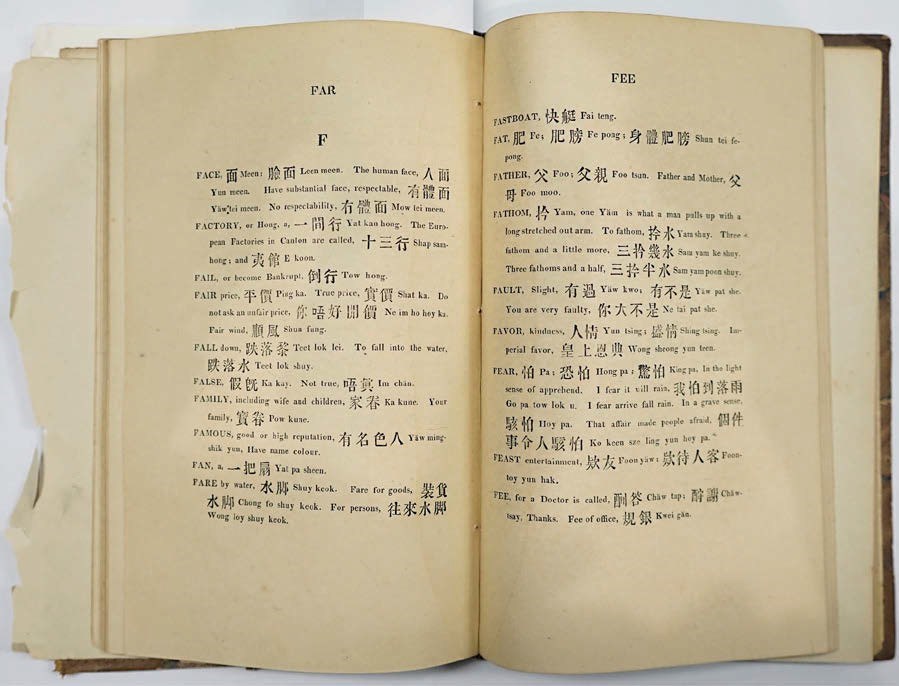 FAR
F
FACE, 面 Meen; 臉面 Leen meen. The human face, 人面
Yun meen. Have substantial face, respectable, 有體面
Yäw tei meen. No respectability, 有體面 Mow tei meen.
FACTORY, or Hong, a, 一間行 Yat kan hong. The Euro-
pean Factories in Canton are called, 十三行 Shap sam-
hong; and 夷館 E koon.
FAIL, or become Bankrupt, 倒行 Tow hong.
FAIR price, 平價 Ping ka. True price, 實價 Shat ka. Do
not ask an unfair price, 你唔好開價 Ne im ho hoy ka.
Fair wind, 順風 Shun fung.
FALL down, 跌落黎 Teet lok lei. To fall into the water,
跌落水 Teet lok shuy.
FALSE, 假 Ka kay. Not true, 唔真 Im chan.
FAMILY, including wife and children, 家眷 Ka kune. Your
family, 寶眷 Pow kune.
FAMOUS, good or high reputation, 有名色人 Yäw ming-
shik yun, Have name colour.
FAN, a, 一把扇 Yat pa sheen.
FARE by water, 水脚 Shuy keok. Fare for goods, 裝貨
水脚 Chong fo shuy keok. For persons, 往來水脚
Wong loy shuy keok.
FEE
FASTBOAT, 快艇 Fai teng.
FAT, 肥 Fe; 肥膀 Fe pong; 身體肥膀 Shun tei fe-
pong.
FATHER, 父 Foo; 父親 Foo tsun. Father and Mother, 父
母 Foo moo.
FATHOM, Yam, one Yäm is what a man pulls up with a
long stretched out arm. To fathom, 水 Yam shuy. Three
fathom and a little more, 三 幾水 Sam yam ke shuy.
Three fathoms and a half, 三 半水 Sam yam poon shuy.
FAULT, Slight, 有過 Yäw kwo; 有不是 Yäw pat she.
You are very faulty, 你大不是 Ne tai pat she.
FAVOR, kindness, 人情 Yun tsing; 盛情 Shing tsing. Im-
perial favor, 皇上恩典 Wong sheong yun teen.
FEAR, 怕 Pa; 恐怕 Hong pa; 驚怕 King pa. In the light
sense of apprehend. I fear it will rain, 我怕到落雨
Go pa tow lok u. I fear arrive fall rain. In a grave sense,
駭怕 Hoy pa. That affair made people afraid, 個件
事令人駭怕 Ko keen sze ling yun hoy pa.
FEAST entertainment, 欵友 Foon yäw; 欵待人客 Foon-
toy yun hak.
FEE, for a Doctor is called, 酧答 Chäw tap; 酧謝 Chäw-
tsay, Thanks. Fee of office, 規銀 Kwei gän.